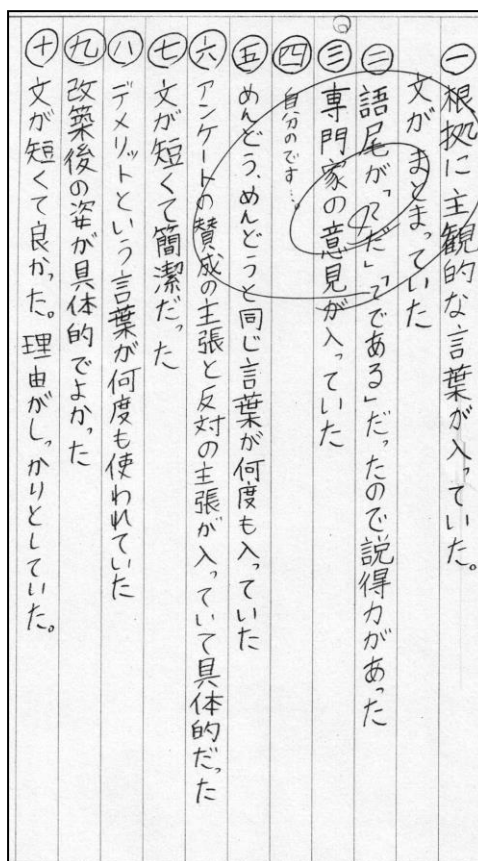 ㊀根拠に主観的な言葉が入っていた。
文がまとまっていた
㊁語尾が「〜だ」「〜である」だったので説得力があった
㊂専門家の意見が入っていた
㊃自分のです…
㊄めんどう、めんどうと同じ言葉が何度も入っていた
㊅アンケートの賛成の主張と反対の主張が入っていて具体的だった
㊆文が短くて簡潔だった
㊇デメリットという言葉が何度も使われていた
㊈改築後の姿が具体的でよかった
㊉文が短くて良かった。理由がしっかりとしていた。